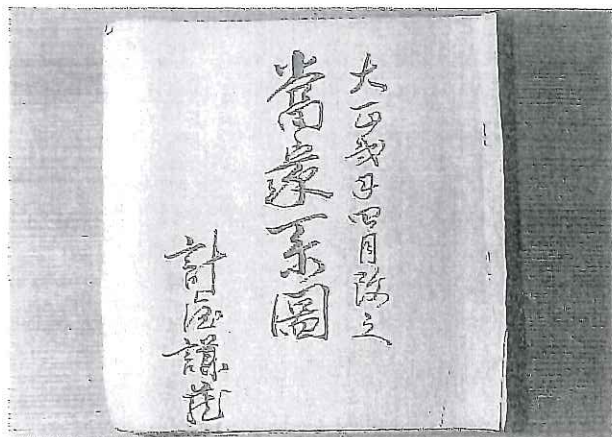 大正弐年四月改之
當家系圖
計謙